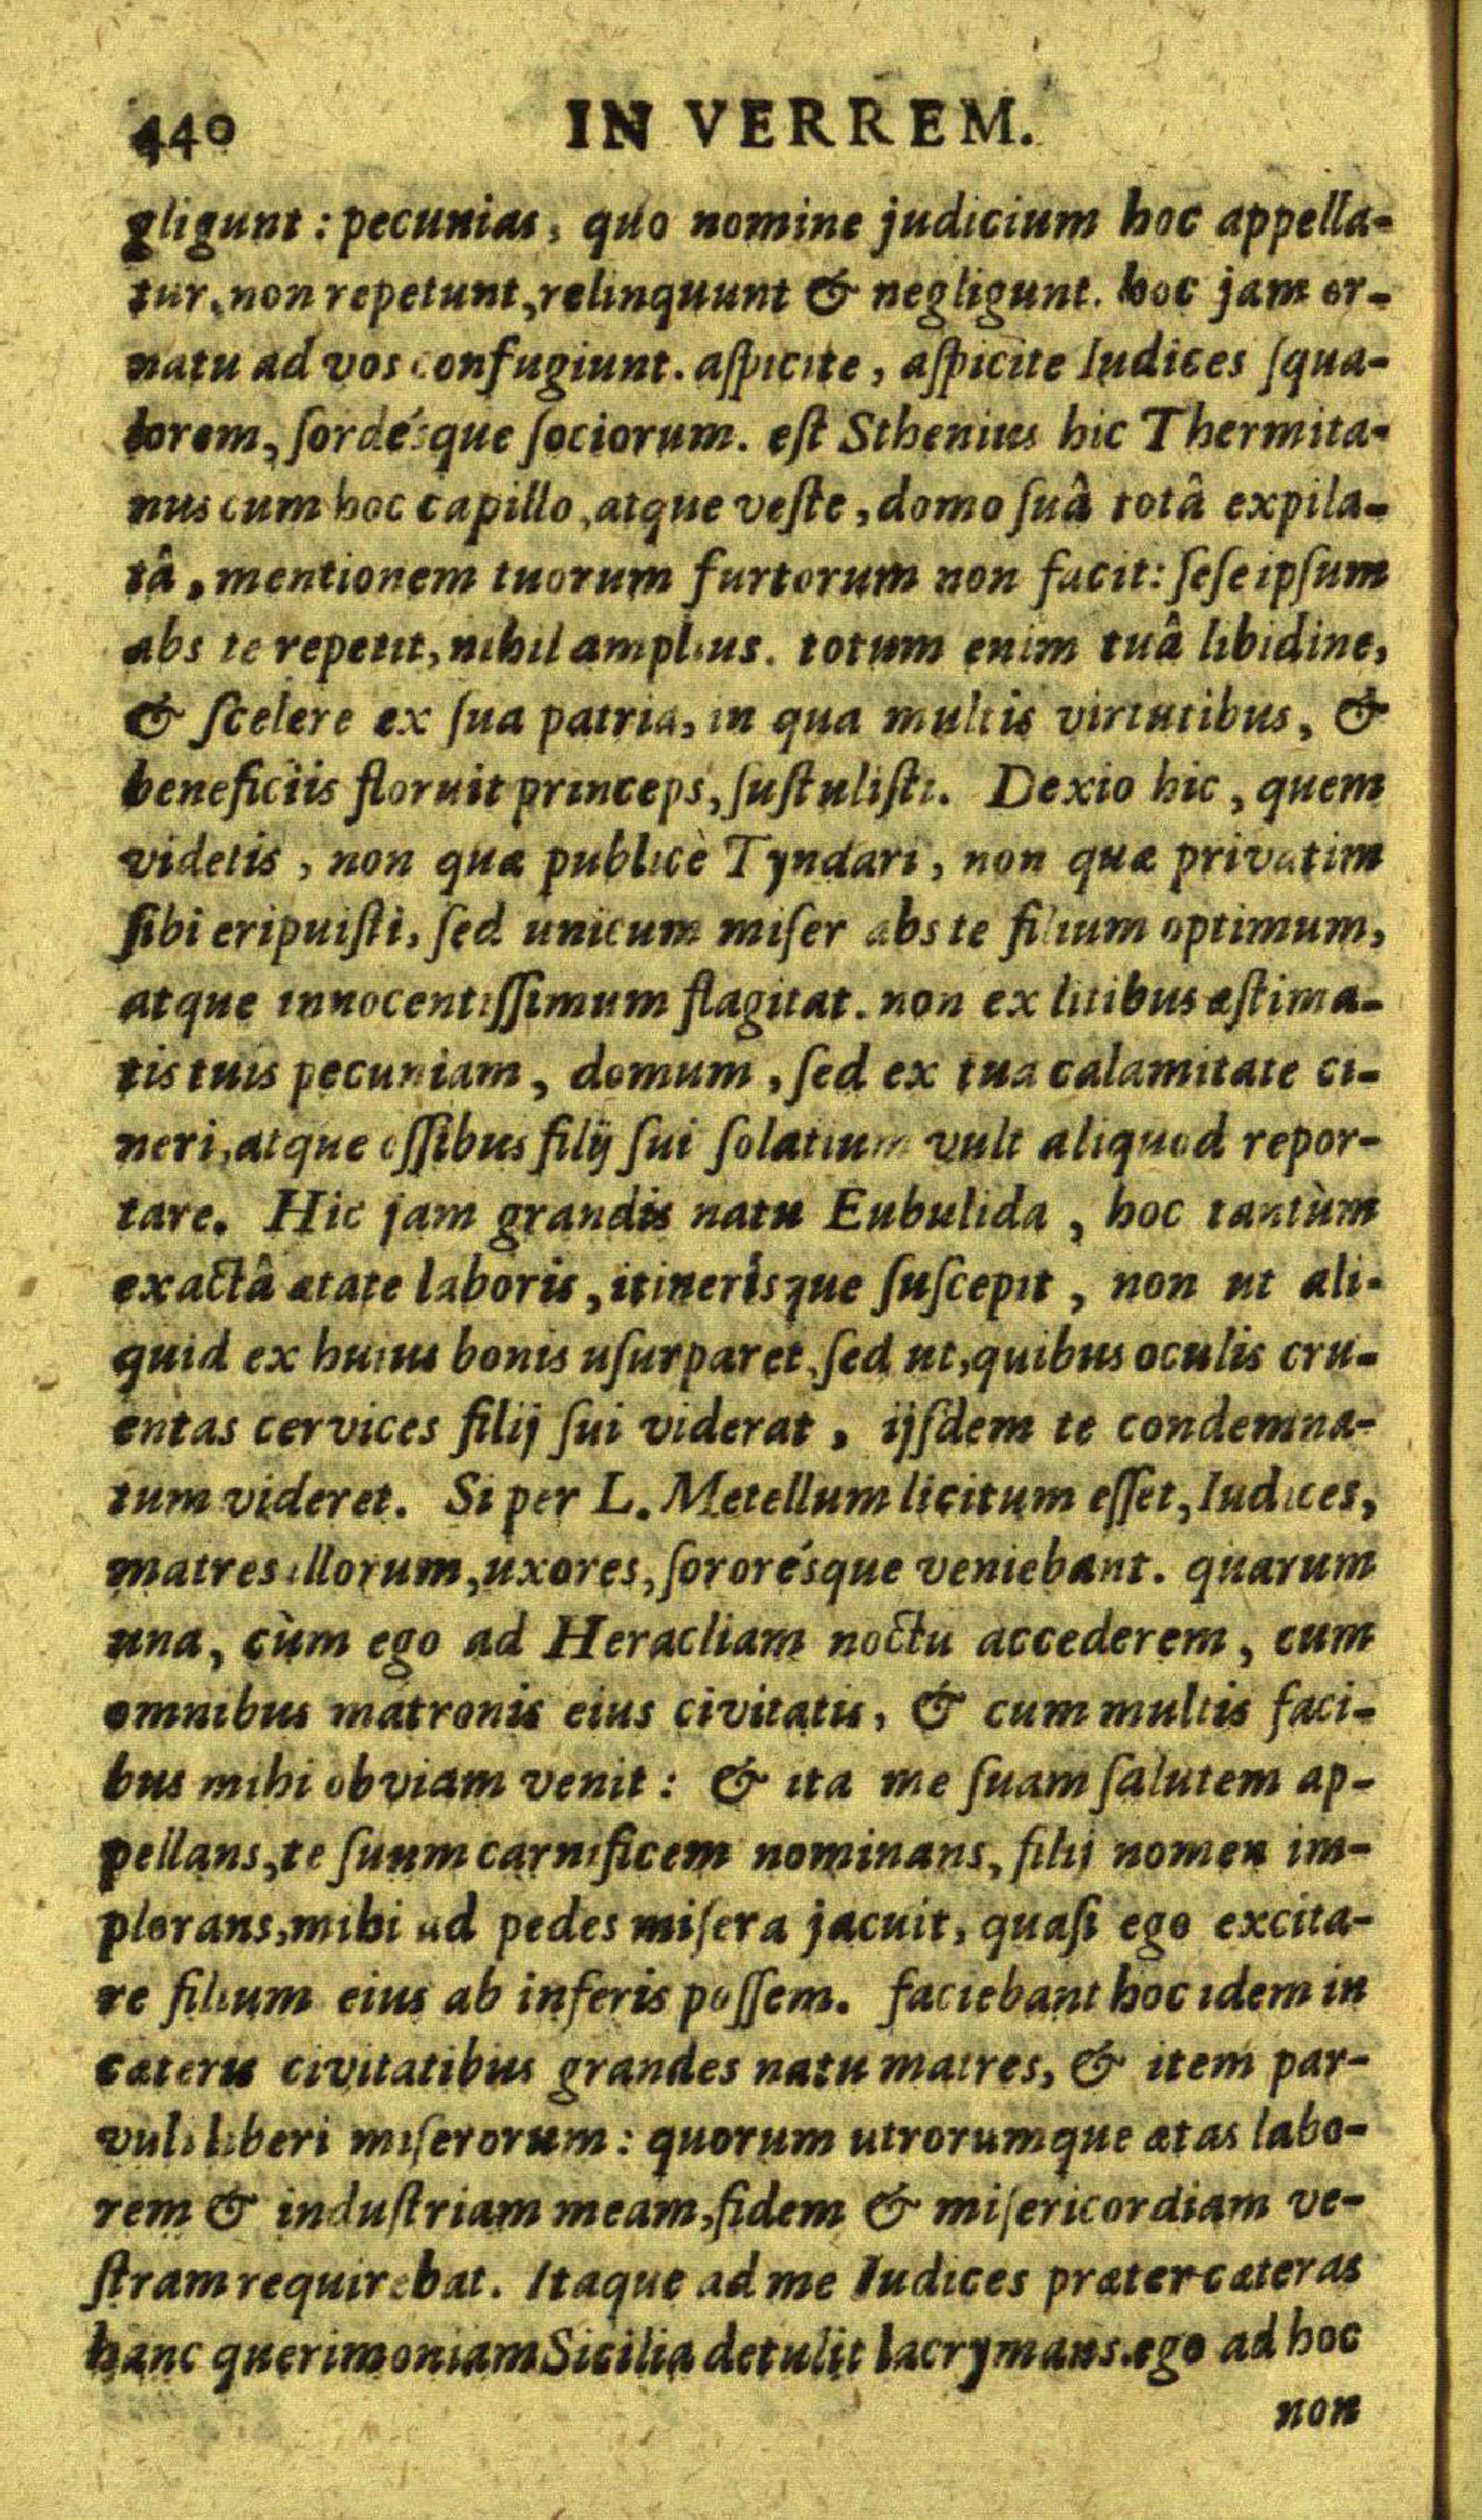 440 IN VERREM.
gligunt : pecunias, quo nomine judicium hoc appella-
tur, non repetunt, relinquunt & negligunt. hoc jam or-
natu ad vos confugiunt. aſpicite, aſpicite Iudices ſqua-
lorem, ſordésque ſociorum. eſt Sthenius hic Thermita-
nus cum hoc capillo, atque veſte, domo ſuâ totâ expila-
tâ, mentionem tuorum furtorum non facit: ſeſe ipſum
abs te repetit, nihil amplius. totum enim tuâ libidine,
& ſcelere ex ſua patria, in qua multis virtutibus, &
beneficiis floruit princeps, ſuſtuliſti. Dexio hic, quem
videtis, non quæ publicè Tyndari, non quæ privatim
ſibi eripuiſti, ſed unicum miſer abs te filium optimum,
atque innocentiſſimum flagitat. non ex litibus æſtima-
tis tuis pecuniam, domum, ſed ex tua calamitate ci-
neri, atque oſſibus filij ſui ſolatium vult aliquod repor-
tare. Hic jam grandis natu Eubulida, hoc tantùm
exactâ ætate laboris, itinerisque ſuſcepit, non ut ali-
quid ex huius bonis uſurparet, ſed ut, quibus oculis cru-
entas cervices filij ſui viderat, ijſdem te condemna-
tum videret. Si per L. Metellum licitum eſſet, Iudices,
matres illorum, uxores, ſororésque veniebant. quarum
una, cùm ego ad Heracliam noctu accederem, cum
omnibus matronis eius civitatis, & cum multis faci-
bus mihi obviam venit : & ita me ſuam ſalutem ap-
pellans, te ſuum carnificem nominans, filij nomen im-
plorans, mihi ad pedes miſera jacuit, quaſi ego excita-
re filium eius ab inferis poſſem. faciebant hoc idem in
cæteris civitatibus grandes natu matres, & item par-
vuli liberi miſerorum : quorum utrorumque ætas labo-
rem & induſtriam meam, fidem & miſericordiam ve-
ſtram requirebat. Itaque ad me Iudices præter cæteras
hanc querimoniam Sicilia detulit lacrymans. ego ad hoc
non